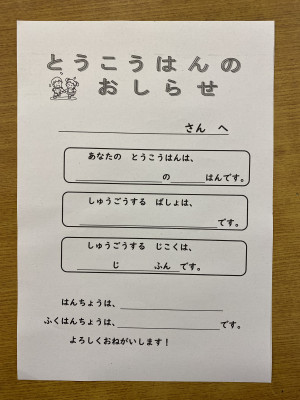 とうこうはんの
おしらせ
さん へ
あなたの とうこうはんは、
の はんです。
しゅうごうする ばしょは、
です。
しゅうごうする じこくは、
じ ふん です。
はんちょうは、
ふくはんちょうは、 です。
よろしくおねがいします！